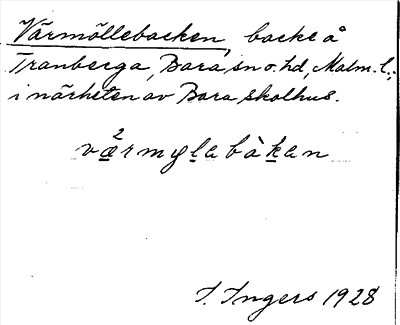 Värmöllebacken, backe å
Tranberga, Bara sn o. hd, Malm. l.;
i närheten av Bara skolhus.
væ̀²rmyḷabàḳan
I. Ingers 1928